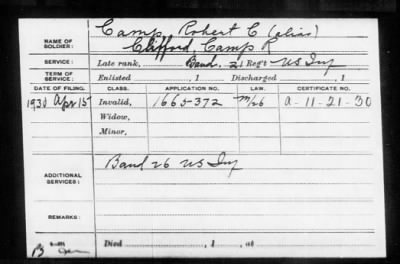 Camp, Robert C (alias)
NAME OF SOLDIER: Clifford, Camp R
SERVICE: Late rank, Band. 21 Reg't US Inf
TERM OF SERVICE: Enlisted , 1 Discharged , 1
DATE OF FILING. CLASS. APPLICATION NO. LAW. CERTIFICATE NO.
1930 Apr 15 Invalid, 1665-372 m/26 a-11-21-30
Widow,
Minor,
ADDITIONAL SERVICES: Band 26 US Inf
REMARKS:
Died , 1 , at